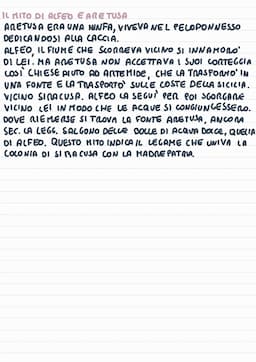 IL MITO DI ALFEO E ARETUSA
ARETUSA ERA UNA NINFA, VIVEVA NEL PELOPONNESSO
DEDICANDOSI ALLA CACCIA.
ALFEO, IL FIUME CHE SCORREVA VICINO SI INNAMORO'
DI LEI. MA ARETUSA NON ACCETTAVA I SUOI CORTEGGIA
COSÌ CHIESE AIUTO AD ARTEMIDE, CHE LA TRASFORMO' IN
UNA FONTE E LA TRASPORTÒ SULLE COSTE DELLA SICILIA.
VICINO SIRACUSA. ALFEO LA SEGUÌ PER POI SGORGARE
VICINO LEI IN MODO CHE LE ACQUE SI CONGIUNGESSERO.
DOVE RIEMERSE SI TROVA LA FONTE ARETUSA, ANCORA
SEC. LA LEGG. SALGONO DELLE BOLLE DI ACQUA DOLCE, QUELLA
DI ALFEO. QUESTO MITO INDICA IL LEGAME CHE UNIVA LA
COLONIA DI SIRACUSA CON LA MADREPATRIA.